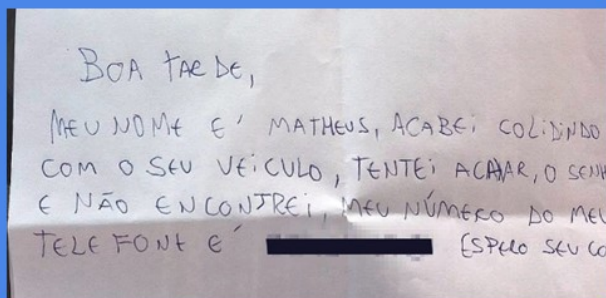 BOA TARDE,
MEU NOME E' MATHEUS, ACABEI COLIDINDO
COM O SEU VEÍCULO, TENTEI ACHAR, O SENH
E NÃO ENCONTREI, MEU NÚMERO DO MEU
TELEFONE E' ESPERO SEU CO